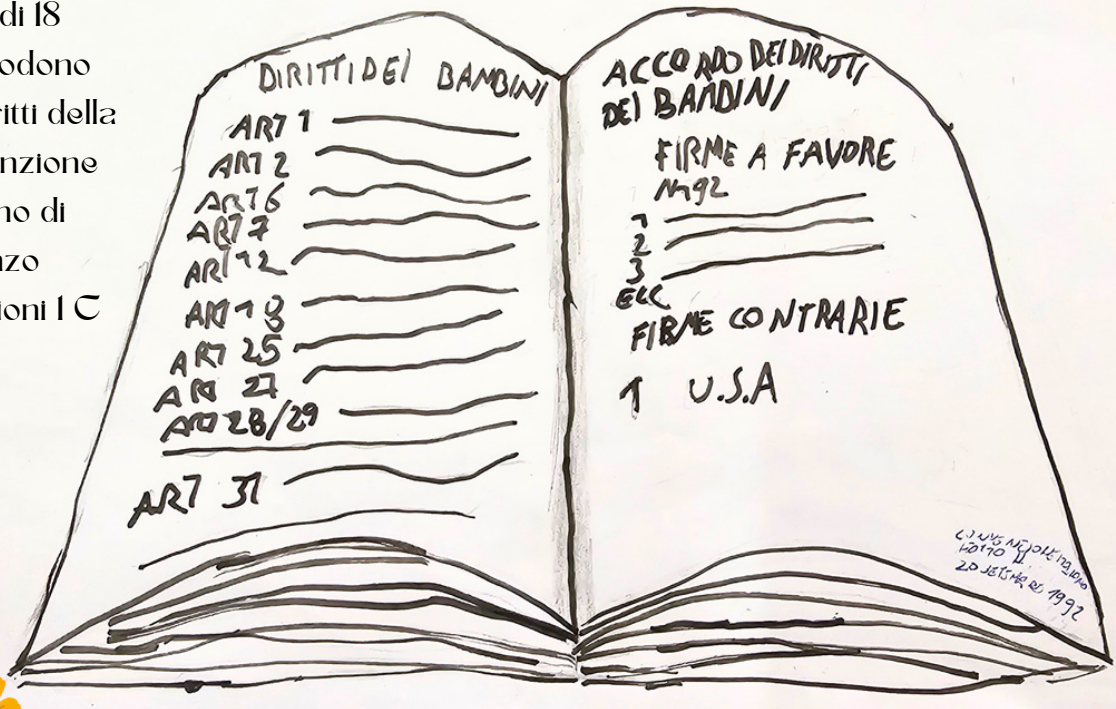 di 18
odono
ritti della
nzione
no di
nzo
ioni 1 C
DIRITTI DEI BAMBINI
ART 1
ART 2
ART 6
ART 7
ART 12
ART 18
ART 25
ART 27
ART 28/29
ART 31
ACCORDO DEI DIRITTI
DEI BAMBINI
FIRME A FAVORE
N192
1
2
3
ECC
FIRME CONTRARIE
1 U.S.A
20 1992